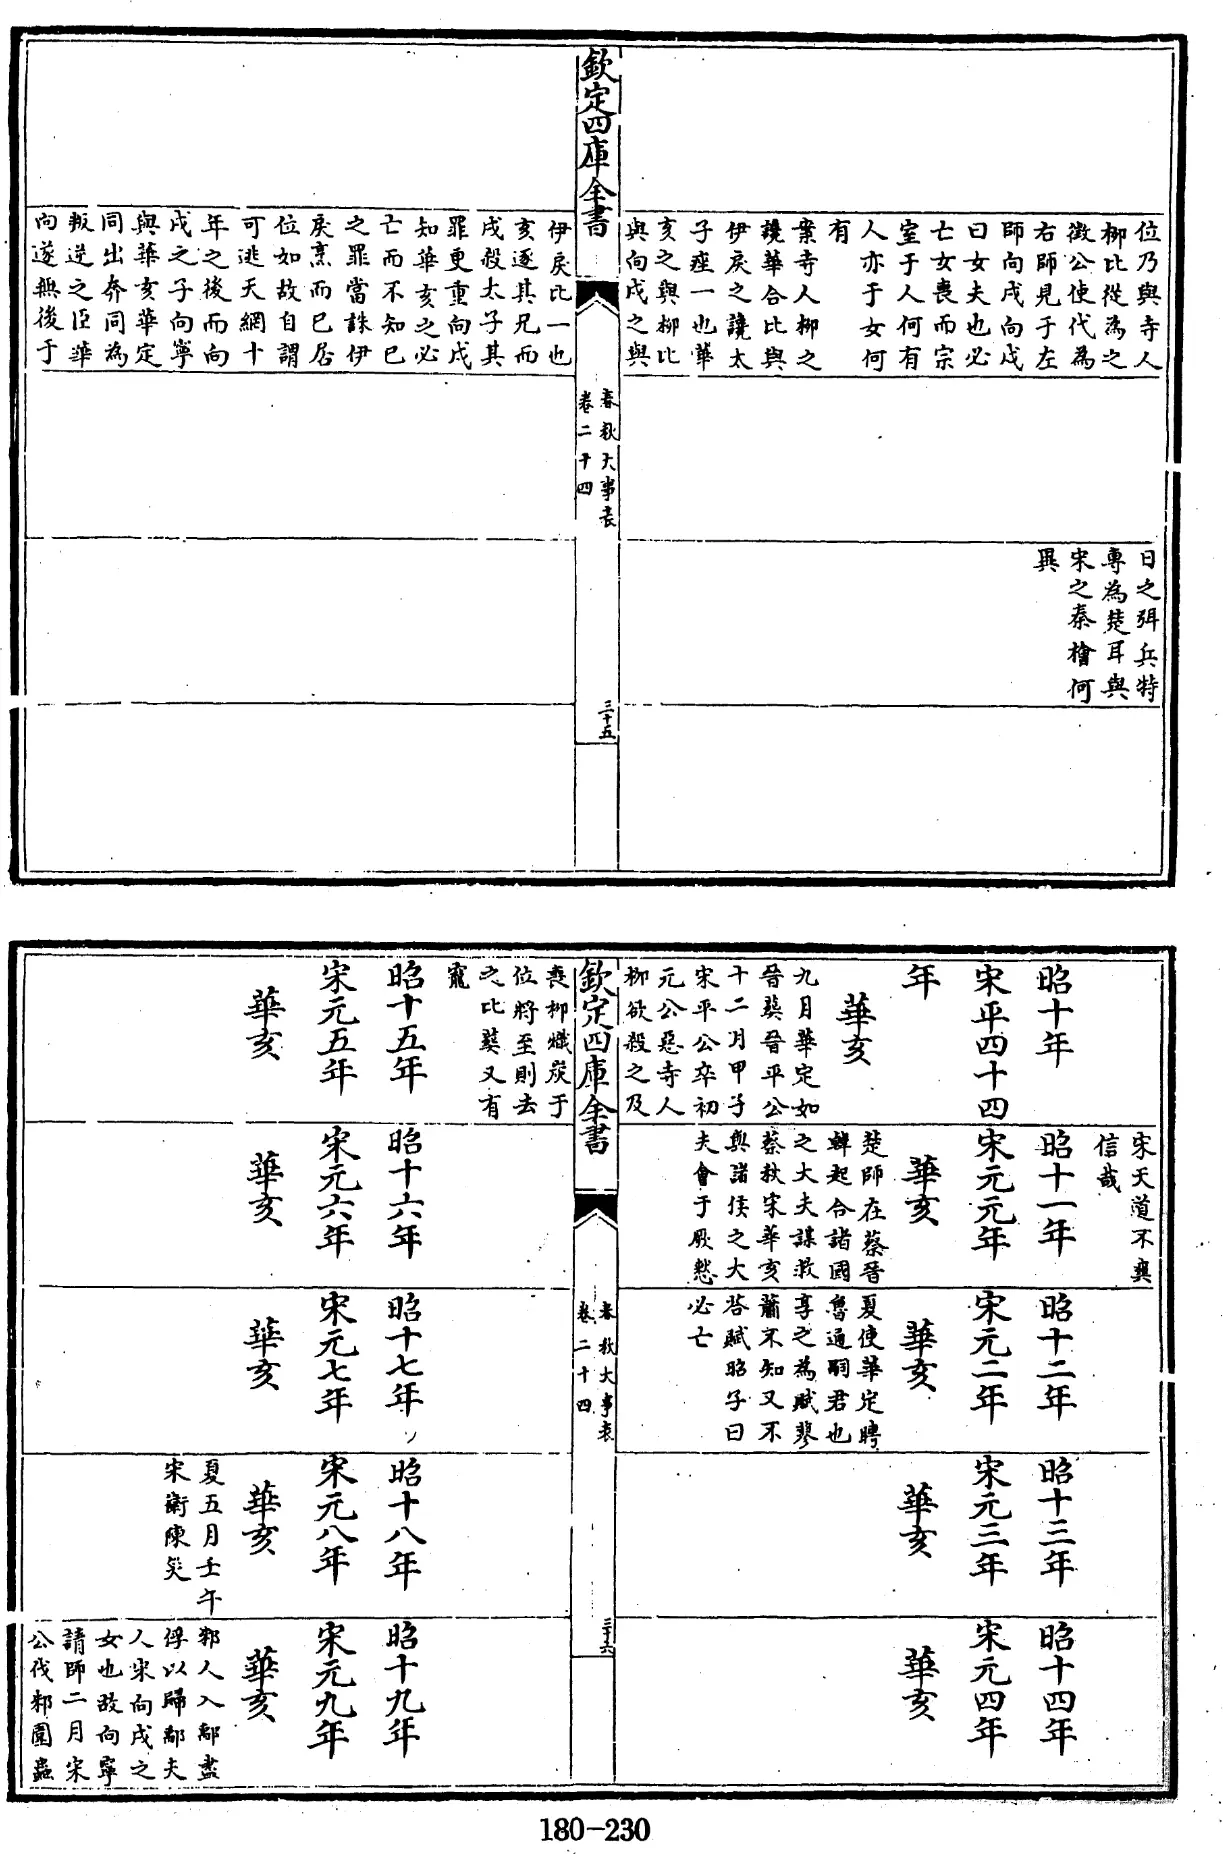 位乃與寺人
柳比從為之
徵公使代為
右師見于左
師向戌向戌
曰女夫也必
亡女喪而宗
室于人何有
人亦于女何
有
案寺人柳之
讒華合比與
伊戾之讒太
子痤一也華
亥之與柳比
與向戌之與
日之弭兵特
專為楚耳與
宋之秦檜何
異
欽定四庫全書
春秋大事表
卷二十四
三十五
伊戾比一也
亥逐其兄而
戌殺太子其
罪更重向戌
知華亥之必
亡而不知已
之罪當誅伊
戾烹而已居
位如故自謂
可逃天網十
年之後而向
戌之子向寧
與華亥華定
同出奔同為
叛逆之臣華
向遂無後于
昭十年
宋平四十四
年
華亥
九月華定如
晉葬晉平公
十二月甲子
宋平公卒初
元公惡寺人
柳欲殺之及
宋天道不爽
信哉
昭十一年
宋元元年
華亥
楚師在蔡晉
韓起合諸國
之大夫謀救
蔡秋宋華亥
與諸侯之大
夫會于厥憖
昭十二年
宋元二年
華亥
夏使華定聘
魯通嗣君也
享之為賦蓼
蕭不知又不
答賦昭子曰
必亡
昭十三年
宋元三年
華亥
昭十四年
宋元四年
華亥
欽定四庫全書
春秋大事表
卷二十四
三十六
喪柳熾炭于
位將至則去
之比葬又有
寵
昭十五年
宋元五年
華亥
昭十六年
宋元六年
華亥
昭十七年
宋元七年
華亥
昭十八年
宋元八年
華亥
夏五月壬午
宋衛陳災
昭十九年
宋元九年
華亥
邾人入鄅盡
俘以歸鄅夫
人宋向戌之
女也故向寧
請師二月宋
公伐邾圍蟲
180-230